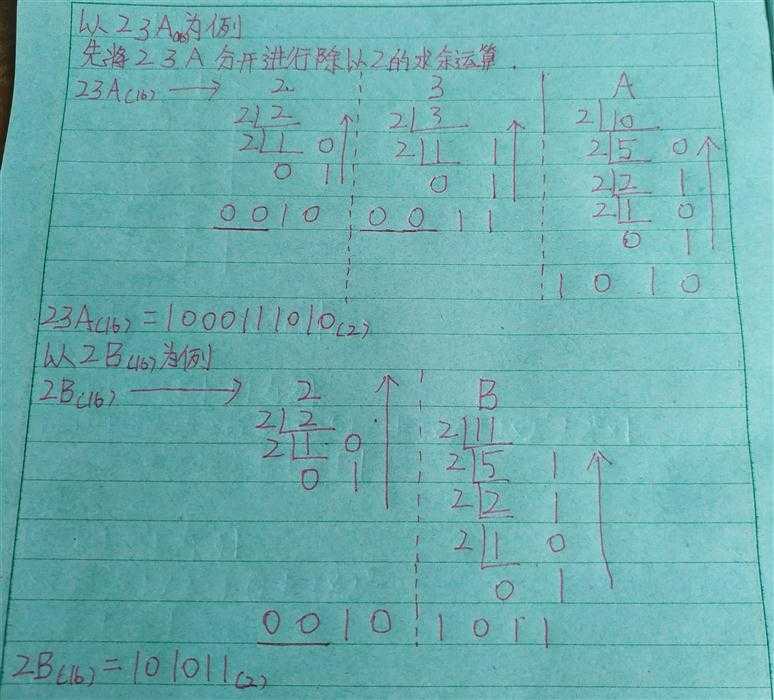 以23A(16)为例
先将23A分开进行除以2的求余运算.
23A(16) → 2 3 A
2 2 2 3 2 10
2 1 0 2 1 1 2 5 0
0 1 0 1 2 2 1
2 1 0
0010 0011 0 1
1010
23A(16)=1000111010(2)
以2B(16)为例
2B(16) → 2 B
2 2 2 11
2 1 0 2 5 1
0 1 2 2 1
2 1 0
0 1
0010 1011
2B(16)=101011(2)